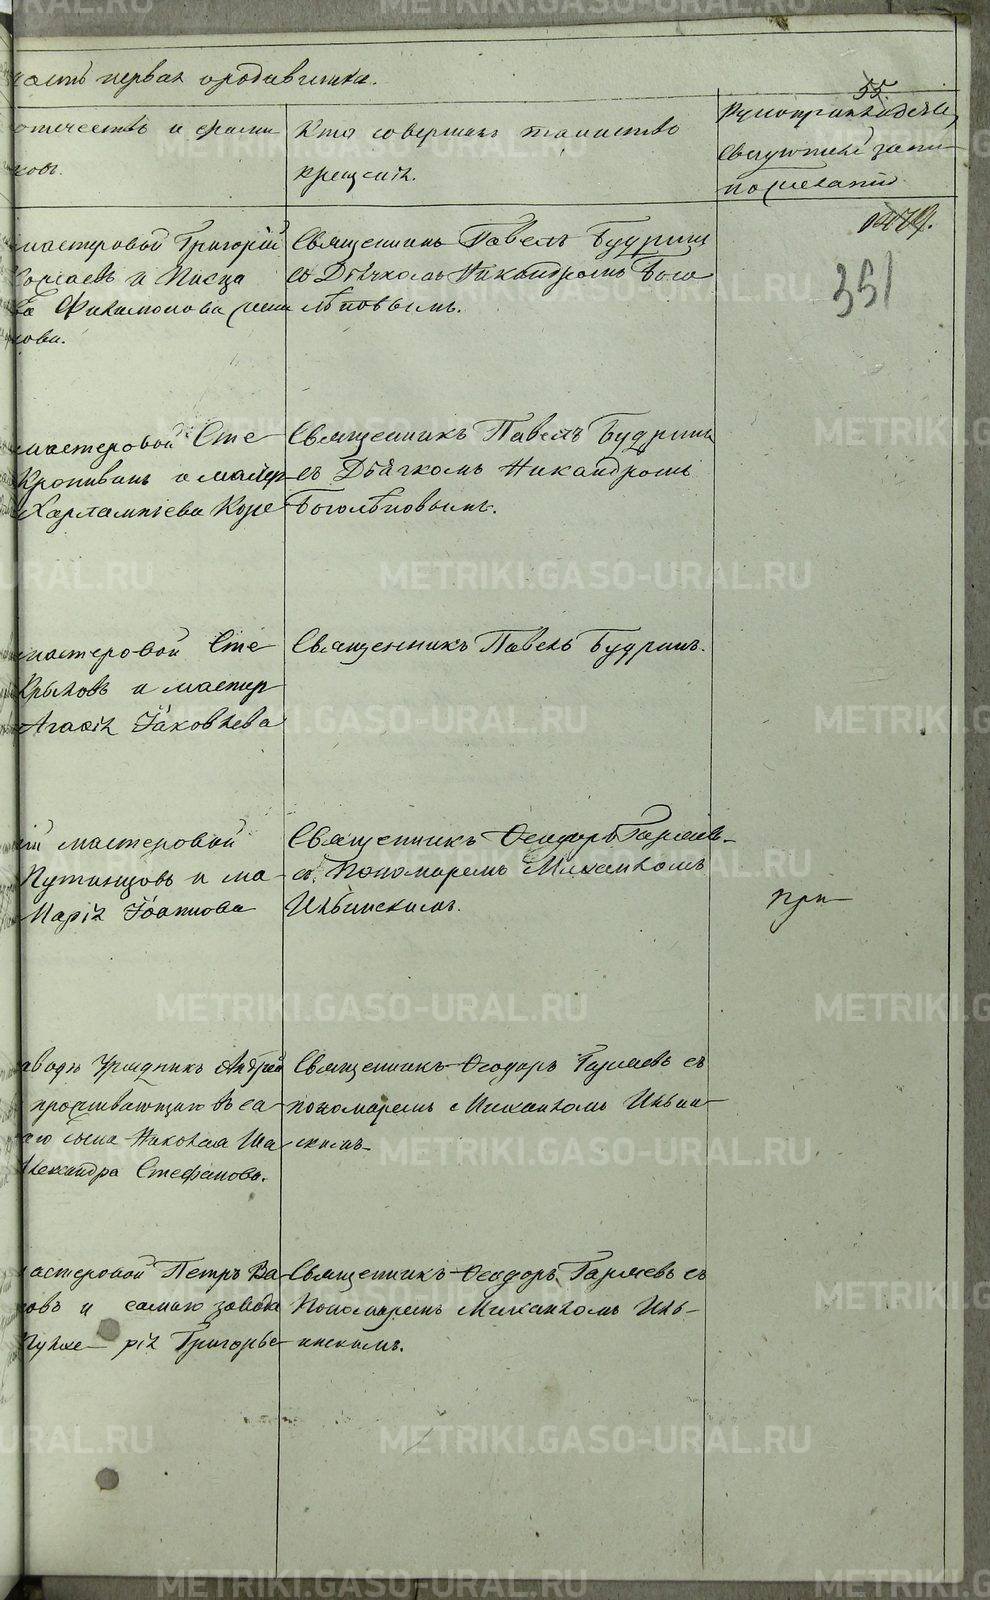 часть первая о родившихся.
55.
отечество и фами-
Кто совершалъ таинство
крещенія.
Рукоприкладства
свидѣтелей запи-
по желанію.
351
мастеровой Григорій
и
Филимонова
кова.
Священникъ Павелъ Будринъ
съ Дьячкомъ Никандромъ Бого
лѣповымъ.
мастеровой Сте
Кропивинъ и мастер
Харлампіева
Священникъ Павелъ Будринъ
съ Дьячкомъ Никандромъ
Боголѣповымъ.
мастеровой Сте
Крыловъ и мастер
Агафія Іаковлева
Священникъ Павелъ Будринъ.
ій мастеровой
Путинцовъ и ма-
Марія Іоаннова
Священникъ Ѳеодоръ Гаряевъ
съ Пономаремъ Михаиломъ
Ильинскимъ.
при
Урядникъ Андрей
проживающаго въ са
сына Николая Ша
лександра Стефановъ.
Священникъ Ѳеодоръ Гаряевъ съ
пономаремъ Михаиломъ Ильин-
скимъ
астеровой Петръ Ва
овъ и самаго завода
рія Григорье
Священникъ Ѳеодоръ Гаряевъ съ
Пономаремъ Михаиломъ Иль-
инскимъ.
METRIKI.GASO-URAL.RU